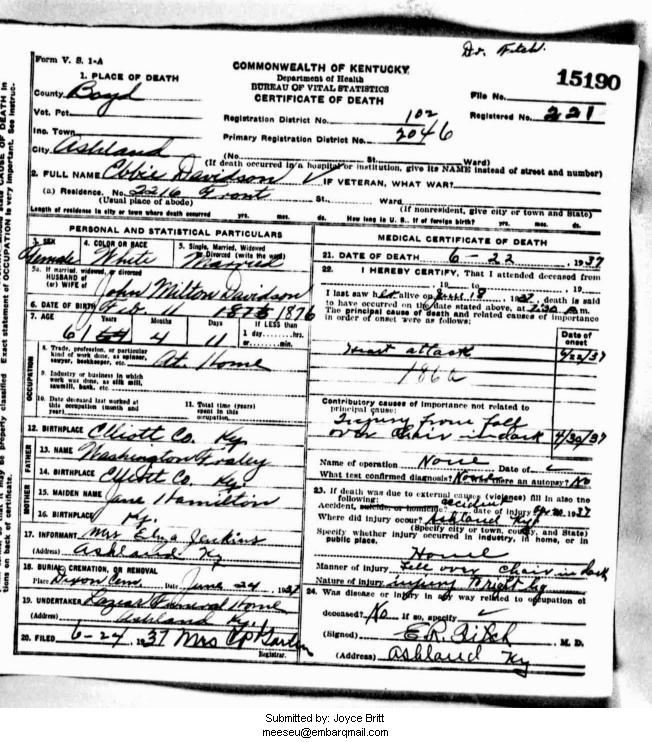 Dr. Fitch.
Form V. S. 1-A
COMMONWEALTH OF KENTUCKY
Department of Health
BUREAU OF VITAL STATISTICS
CERTIFICATE OF DEATH
15190
1. PLACE OF DEATH
County Boyd
File No.
Vot. Pct.
Registration District No. 102
Registered No. 221
Inc. Town
Primary Registration District No. 2046
City Ashland
(No. St. Ward)
(If death occurred in a hospital or institution, give its NAME instead of street and number)
2. FULL NAME Ebbie Davidson
IF VETERAN, WHAT WAR?
(a) Residence. No. 2216 Front St. Ward
(Usual place of abode)
(If nonresident, give city or town and State)
Length of residence in city or town where death occurred yrs. mos. ds. How long in U. S. if of foreign birth? yrs. mos. ds.
PERSONAL AND STATISTICAL PARTICULARS
3. SEX Female
4. COLOR OR RACE White
5. Single, Married, Widowed Divorced (write the word) Married
5a. If married, widowed, or divorced
HUSBAND of
(or) WIFE of John Milton Davidson
6. DATE OF BIRTH Feb. 11 1875 1876
7. AGE Years 61 Months 4 Days 11 If LESS than
1 day hrs.
or min.
OCCUPATION
8. Trade, profession, or particular
kind of work done, as spinner,
sawyer, bookkeeper, etc. At Home
9. Industry or business in which
work was done, as silk mill,
sawmill, bank, etc.
10. Date deceased last worked at
this occupation (month and
year)
11. Total time (years)
spent in this
occupation
12. BIRTHPLACE Elliott Co. Ky.
FATHER
13. NAME Washington Fraley
14. BIRTHPLACE Elliott Co. Ky
MOTHER
15. MAIDEN NAME Jane Hamilton
16. BIRTHPLACE Ky.
17. INFORMANT Mrs Elza Jenkins
(Address) Ashland Ky
18. BURIAL, CREMATION, OR REMOVAL
Place Dixon Cem. Date June 24 1937
19. UNDERTAKER Lazear Funeral Home
(Address) Ashland Ky.
20. FILED 6-24 1937 Mrs
Registrar.
MEDICAL CERTIFICATE OF DEATH
21. DATE OF DEATH 6-22, 1937
22. I HEREBY CERTIFY, That I attended deceased from
, 19 to , 19
I last saw her alive on 18 1937, death is said
to have occurred on the date stated above, at 7:30 a.m.
The principal cause of death and related causes of importance
in order of onset were as follows:
Date of
onset
Heart attack 6/22/37
186a
Contributory causes of importance not related to
principal cause:
Injury from fall
over chair in dark 4/30/37
Name of operation None Date of
What test confirmed diagnosis? Was there an autopsy? No
23. If death was due to external causes (violence) fill in also the
following:
Accident, suicide, or homicide? accident date of injury 1937
Where did injury occur? Ashland Ky
(Specify city or town, county, and State)
Specify whether injury occurred in industry, in home, or in
public place.
Home
Manner of injury Fell over chair in dark
Nature of injury injury right leg
24. Was disease or injury in any way related to occupation of
deceased? No If so, specify
(Signed) E.R. Fitch M. D.
(Address) Ashland Ky
Submitted by: Joyce Britt
meeseu@embarqmail.com